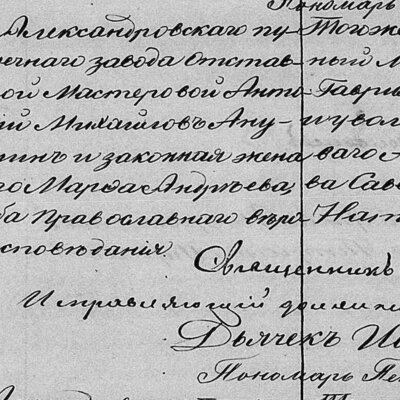 Пономарь
Александровскаго пу- Тогоже
ечнаго завода Отстав- ный М
ой Мастеровой Анто- Гаври
ий Михайловъ Апу- и увол
инъ и законная жена ваго А
го Марѳа Андрѣева, ва Сав
ба Православнаго вѣро Нат
сповѣданія.
Священникъ
Исправляющій должн
Дьячекъ И
Пономарь Пе